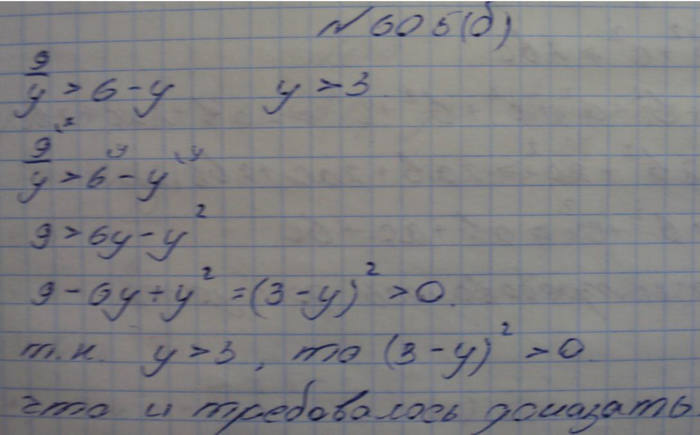 №605(б)
9/y > 6 - y y > 3
9/y > 6 - y
9 > 6y - y²
9 - 6y + y² = (3 - y)² > 0.
т.к. y > 3, то (3 - y)² > 0
что и требовалось доказать